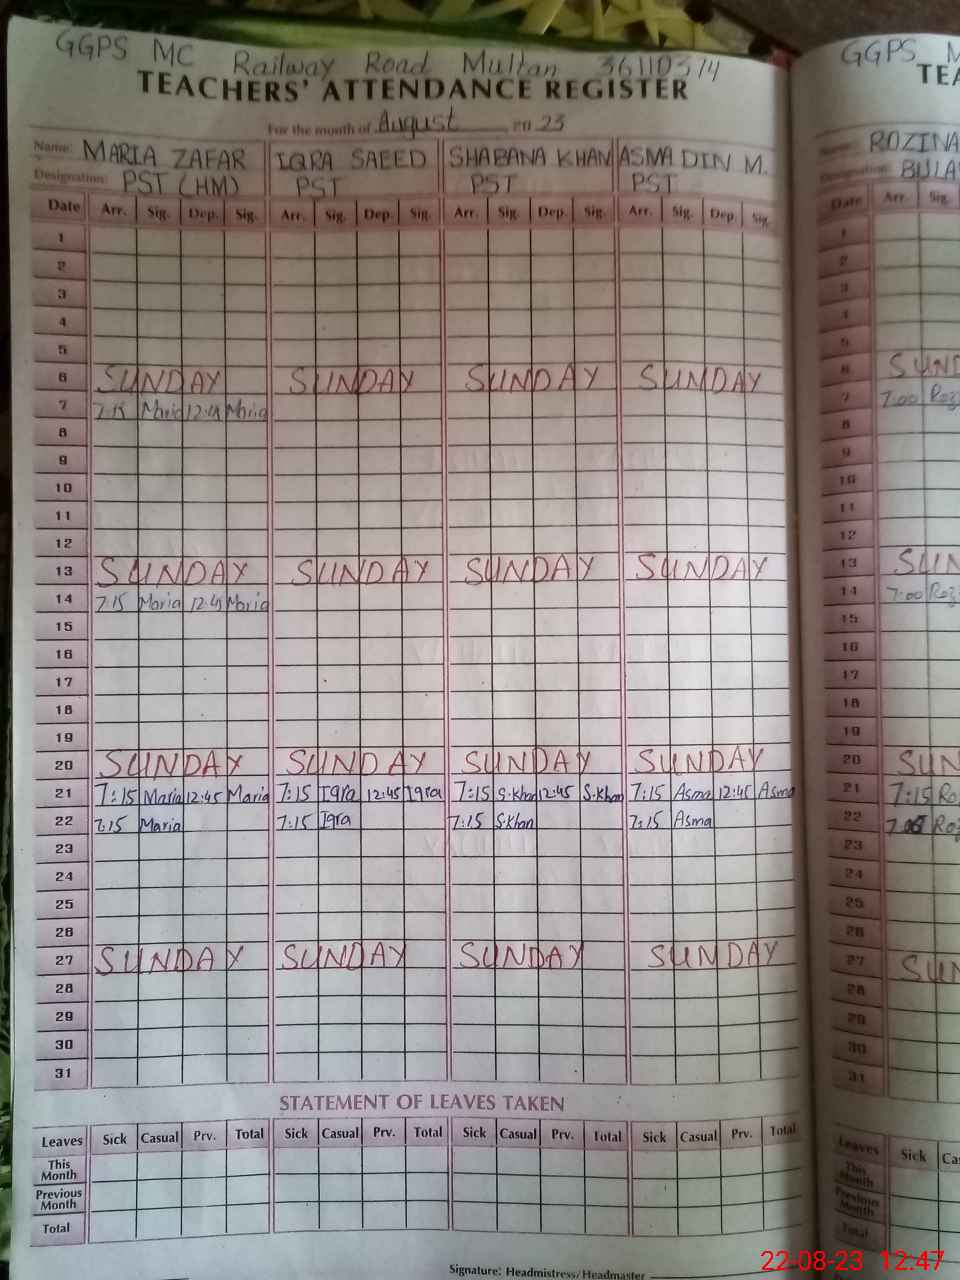 GGPS MC Railway Road Multan 36110314
TEACHERS' ATTENDANCE REGISTER
For the month of August 2023
Name: MARIA ZAFAR IQRA SAEED SHABANA KHAN ASMA DIN M.
Designation: PST (HM) PST PST PST
Date Arr. Sig. Dep. Sig. Arr. Sig. Dep. Sig. Arr. Sig. Dep. Sig. Arr. Sig. Dep. Sig.
1
2
3
4
5
6 SUNDAY SUNDAY SUNDAY SUNDAY
7 7:15 Maria 12:45 Maria
8
9
10
11
12
13 SUNDAY SUNDAY SUNDAY SUNDAY
14 7:15 Maria 12:45 Maria
15
16
17
18
19
20 SUNDAY SUNDAY SUNDAY SUNDAY
21 7:15 Maria 12:45 Maria 7:15 Iqra 12:45 Iqra 7:15 S.Khan 12:45 S.Khan 7:15 Asma 12:45 Asma
22 7:15 Maria 7:15 Iqra 7:15 S.Khan 7:15 Asma
23
24
25
26
27 SUNDAY SUNDAY SUNDAY SUNDAY
28
29
30
31
STATEMENT OF LEAVES TAKEN
Leaves Sick Casual Prv. Total Sick Casual Prv. Total Sick Casual Prv. Total Sick Casual Prv. Total
This Month
Previous Month
Total
Signature: Headmistress/Headmaster
GGPS M
TEA
Name: ROZINA
Designation:
Date Arr. Sig.
1
2
3
4
5
6 SUND
7 7:00 Roz
8
9
10
11
12
13 SUN
14 7:00 Roz
15
16
17
18
19
20 SUN
21 7:15 Ro
22 Roz
23
24
25
26
27 SUN
28
29
30
31
Leaves Sick Ca
This Month
Previous Month
Total
22-08-23 12:47